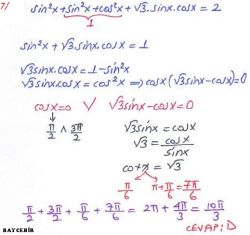 7/ sin²x+sin²x+cos²x+√3.sinx.cosx=2
1
sin²x+√3sinx.cosx=1
√3sinx.cosx=1-sin²x
√3sinx.cosx=cos²x ⟹ cosx(√3sinx-cosx)=0
cosx=0 ∨ √3sinx-cosx=0
π/2 ∧ 3π/2
√3sinx=cosx
√3=cosx/sinx
cotx=√3
π/6 π+π/6=7π/6
π/2+3π/2+π/6+7π/6=2π+4π/3=10π/3
CEVAP:D
BAYCEBİR